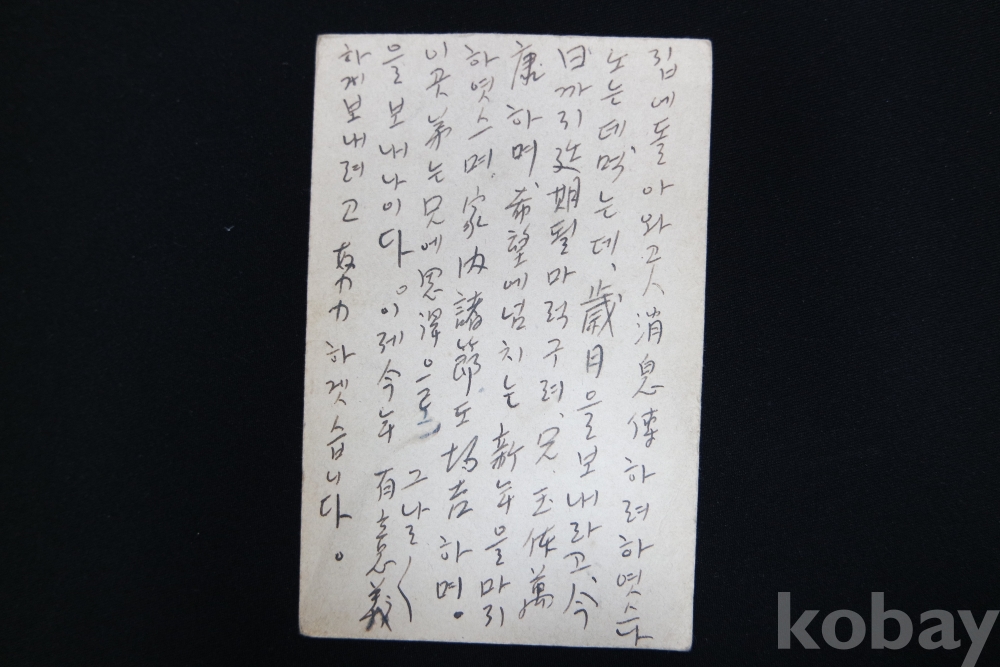 집에돌아와곳消息傳하려하엿스나
노는데먹는데、歲月을보내라고、今
日까지延期될마럭구려、兄、玉体萬
康하며、希望에넘치는新年을마지
하엿스며、家內諸節도均吉하며。
이곳弟는兄에恩澤으로、그날〱
을보내나이다。이제今年有意義
하게보내려고努力하겟습니다。
kobay